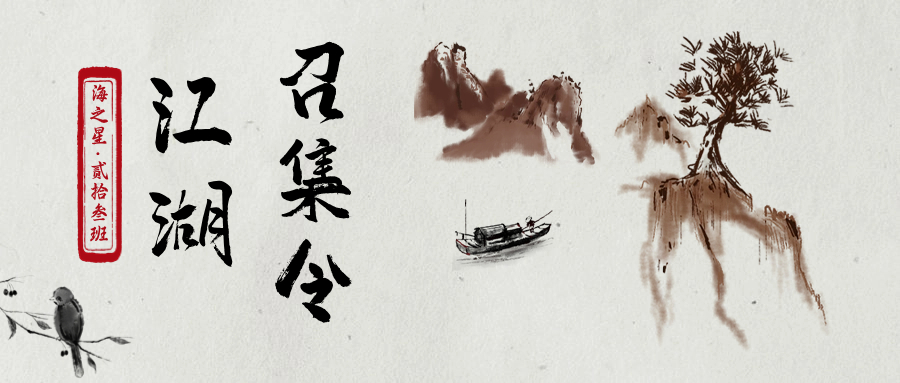 召集令
江湖
海之星·贰拾叁班